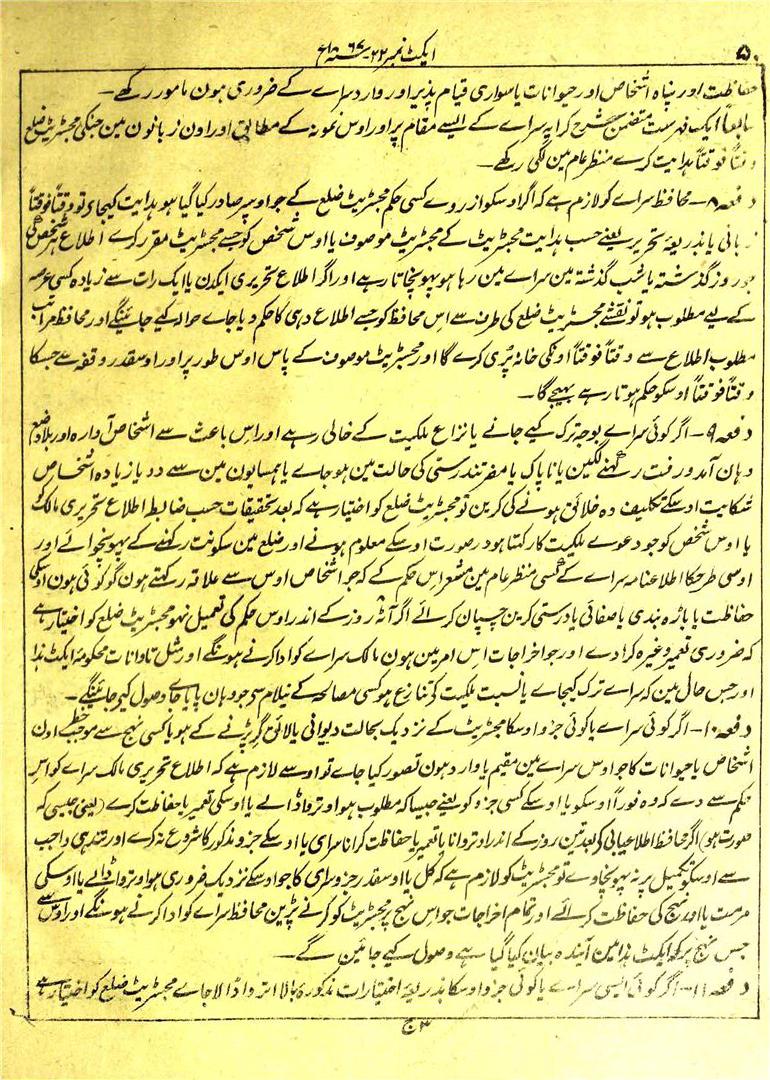 ۵۰
ایکٹ نمبر ۲۲ سنہ ۱۸۶۷ع
حفاظت اور پناہ اشخاص اور حیوانات یا سواری قیام پذیر اور وارد سراے کے ضروری ہون مامور رکھے۔
سابعاً ایک فہرست متضمن شرح کرایہ سراے کے ایسے مقام پر اور اوس نمونہ کے مطابق اور اون زبانون مین جنکی مجسٹریٹ ضلع
وقتاً فوقتاً ہدایت کرے منظر عام مین لگی رکھے۔
دفعہ ۸۔ محافظ سراے کو لازم ہے کہ اگر اوسکو از روے کسی حکم مجسٹریٹ ضلع کے جو اوسپر صادر کیا گیا ہو ہدایت کیجاے تو وقتاً فوقتاً
زبانی یا بذریعۂ تحریر یعنے حسب ہدایت مجسٹریٹ کے مجسٹریٹ موصوف یا اوس شخص کو جسے مجسٹریٹ مقرر کرے اطلاع ہر شخص کی
جو روز گذشتہ یا شب گذشتہ مین سراے مین رہا ہو پہونچاتا رہے اور اگر اطلاع تحریری ایکدن یا ایک رات سے زیادہ کسی عرصہ
کے لیے مطلوب ہو تو نقشے مجسٹریٹ ضلع کی طرف سے اس محافظ کو جسے اطلاع دہی کا حکم دیا جاے حوالہ کیے جائینگے اور محافظ مراتب
مطلوب اطلاع سے وقتاً فوقتاً اونکی خانہ پُری کرے گا اور مجسٹریٹ موصوف کے پاس اوس طور پر اور اوسقدر وقفہ سے جسکا
وقتاً فوقتاً اوسکو حکم ہوتا رہے بھیجے گا۔
دفعہ ۹۔ اگر کوئی سراے بوجہ ترک کیے جانے یا نزاع ملکیت کے خالی رہے اور اس باعث سے اشخاص آوارہ اور بدوضع
وہان آمد و رفت رکھنے لگین یا ناپاک یا مضر تندرستی کی حالت مین ہو جاے یا ہمسایون مین سے دو یا زیادہ اشخاص
شکایت اوسکے تکلیف دہ خلائق ہونے کی کرین تو مجسٹریٹ ضلع کو اختیار ہے کہ بعد تحقیقات حسب ضابطہ اطلاع تحریری مالک کو
یا اوس شخص کو جو دعوے ملکیت کا رکھتا ہو درصورت اوسکے معلوم ہونے اور ضلع مین سکونت رکھنے کے پہونچوائے اور
اوسی طرحکا اطلاعنامہ سراے کے کسی منظر عام مین مشعر اس حکم کے کہ جو اشخاص اوس سے علاقہ رکھتے ہون گو کوئی ہون اوسکی
حفاظت یا باڑہ بندی یا صفائی یا درستی کرین چسپان کرائے اگر آٹھ روز کے اندر اوس حکم کی تعمیل نہو مجسٹریٹ ضلع کو اختیار ہے
کہ ضروری تعمیر وغیرہ کرادے اور جو اخراجات اس امر مین ہون مالک سراے کو ادا کرنے ہونگے اور مثل تاوانات محکومۂ ایکٹ ہذا
اور جس حال مین کہ سراے ترک کیجاے یا نسبت ملکیت کی تنازع ہو کسی مصالحہ کے نیلام سے جو وہان پایا جاے وصول کیے جائینگے۔
دفعہ ۱۰۔ اگر کوئی سراے یا کوئی جزو اوسکا مجسٹریٹ کے نزدیک بحالت ویرانی یا لائق گر پڑنے کے ہو یا کسی نہج سے موجب خطر اون
اشخاص یا حیوانات کا جو اوس سراے مین مقیم یا وارد ہون تصور کیا جاے تو اوسے لازم ہے کہ اطلاع تحریری مالک سراے کو اس
حکم سے دے کہ وہ فوراً اوسکو یا اوسکے کسی جزو کو یعنے جیسا کہ مطلوب ہو اوتروا ڈالے یا اوسکی تعمیر یا حفاظت کرے (یعنی جیسی کہ
صورت ہو) اگر محافظ اطلاعیابی کی بعد تین روز کے اندر اوتروانا یا تعمیر یا حفاظت کرانا سراے یا اوسکے جزو مذکور کا شروع نہ کرے اور تندہی واجب
سے اوسکو تکمیل پر نہ پہونچاوے تو مجسٹریٹ کو لازم ہے کہ کل یا اوسقدر جزو سراے کا جو اوسکے نزدیک ضروری ہو اوتروا ڈالے یا اوسکی
مرمت یا اور نہج کی حفاظت کرائے اور تمام اخراجات جو اس نہج پر مجسٹریٹ کو کرنے پڑین محافظ سراے کو ادا کرنے ہونگے اور اوس سے
جس نہج پر کہ ایکٹ ہذا مین آیندہ بیان کیا گیا ہے وصول کیے جائین گے۔
دفعہ ۱۱۔ اگر کوئی ایسی سراے یا کوئی جزو اوسکا بذریعۂ اختیارات مذکورۂ بالا اتروا ڈالا جاے مجسٹریٹ ضلع کو اختیار ہے
ج ۳